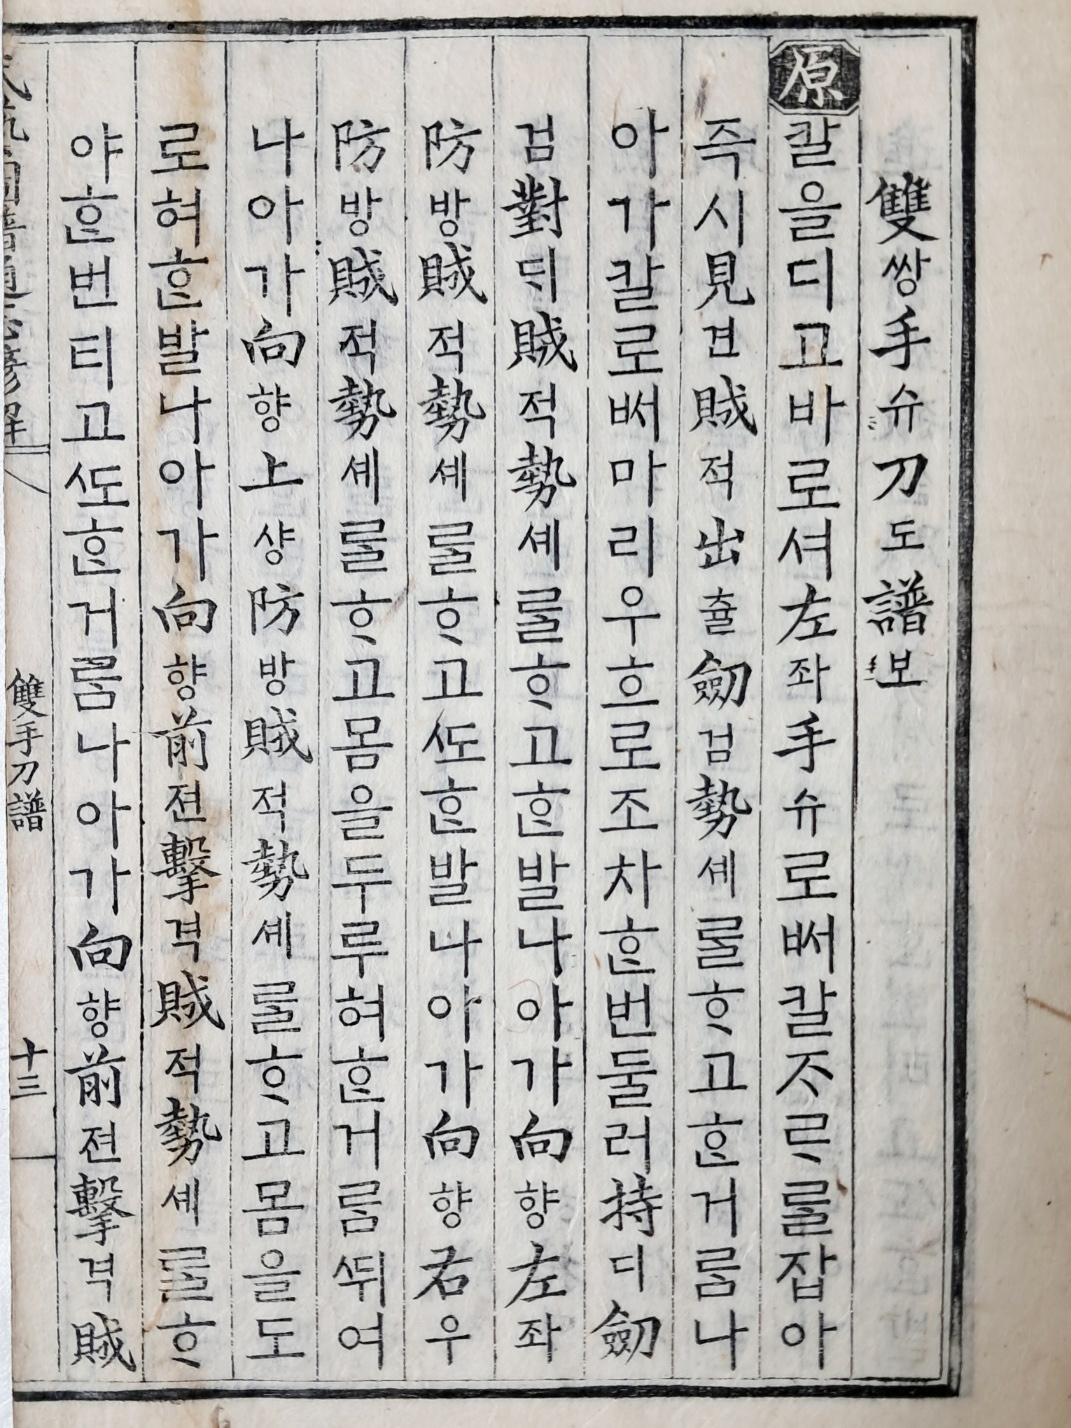 雙쌍手슈刀도譜보
原칼을디고바로셔左좌手슈로ᄡᅥ칼ᄌᆞᄅᆞᄅᆞᆯ잡아
즉시見견賊적出츌劒검勢셰ᄅᆞᆯᄒᆞ고ᄒᆞᆫ거ᄅᆞᆷ나
아가칼로ᄡᅥ마리우흐로조차ᄒᆞᆫ번둘러持디劒
검對ᄃᆡ賊적勢셰ᄅᆞᆯᄒᆞ고ᄒᆞᆫ발나아가向향左좌
防방賊적勢셰ᄅᆞᆯᄒᆞ고ᄯᅩᄒᆞᆫ발나아가向향右우
防방賊적勢셰ᄅᆞᆯᄒᆞ고몸을두루혀ᄒᆞᆫ거ᄅᆞᆷᄯᅱ여
나아가向향上샹防방賊적勢셰ᄅᆞᆯᄒᆞ고몸을도
로혀ᄒᆞᆫ발나아가向향前젼擊격賊적勢셰ᄅᆞᆯᄒᆞ
야ᄒᆞᆫ번티고ᄯᅩᄒᆞᆫ거ᄅᆞᆷ나아가向향前젼擊격賊
武藝圖譜通志諺解 雙手刀譜 十三